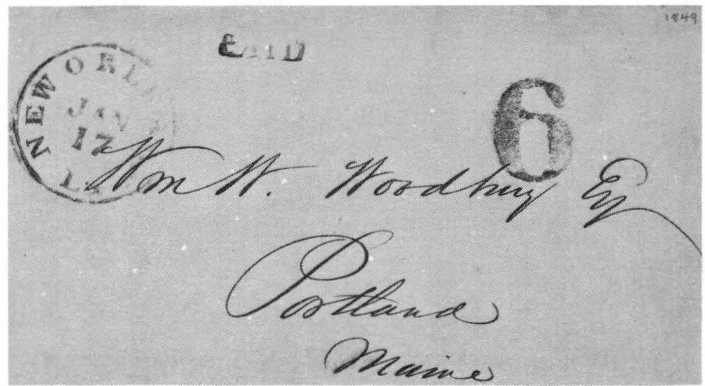 1849
PAID
NEW ORL
JAN
17
LA
6
Wm W. Woodbury Esq
Portland
Maine